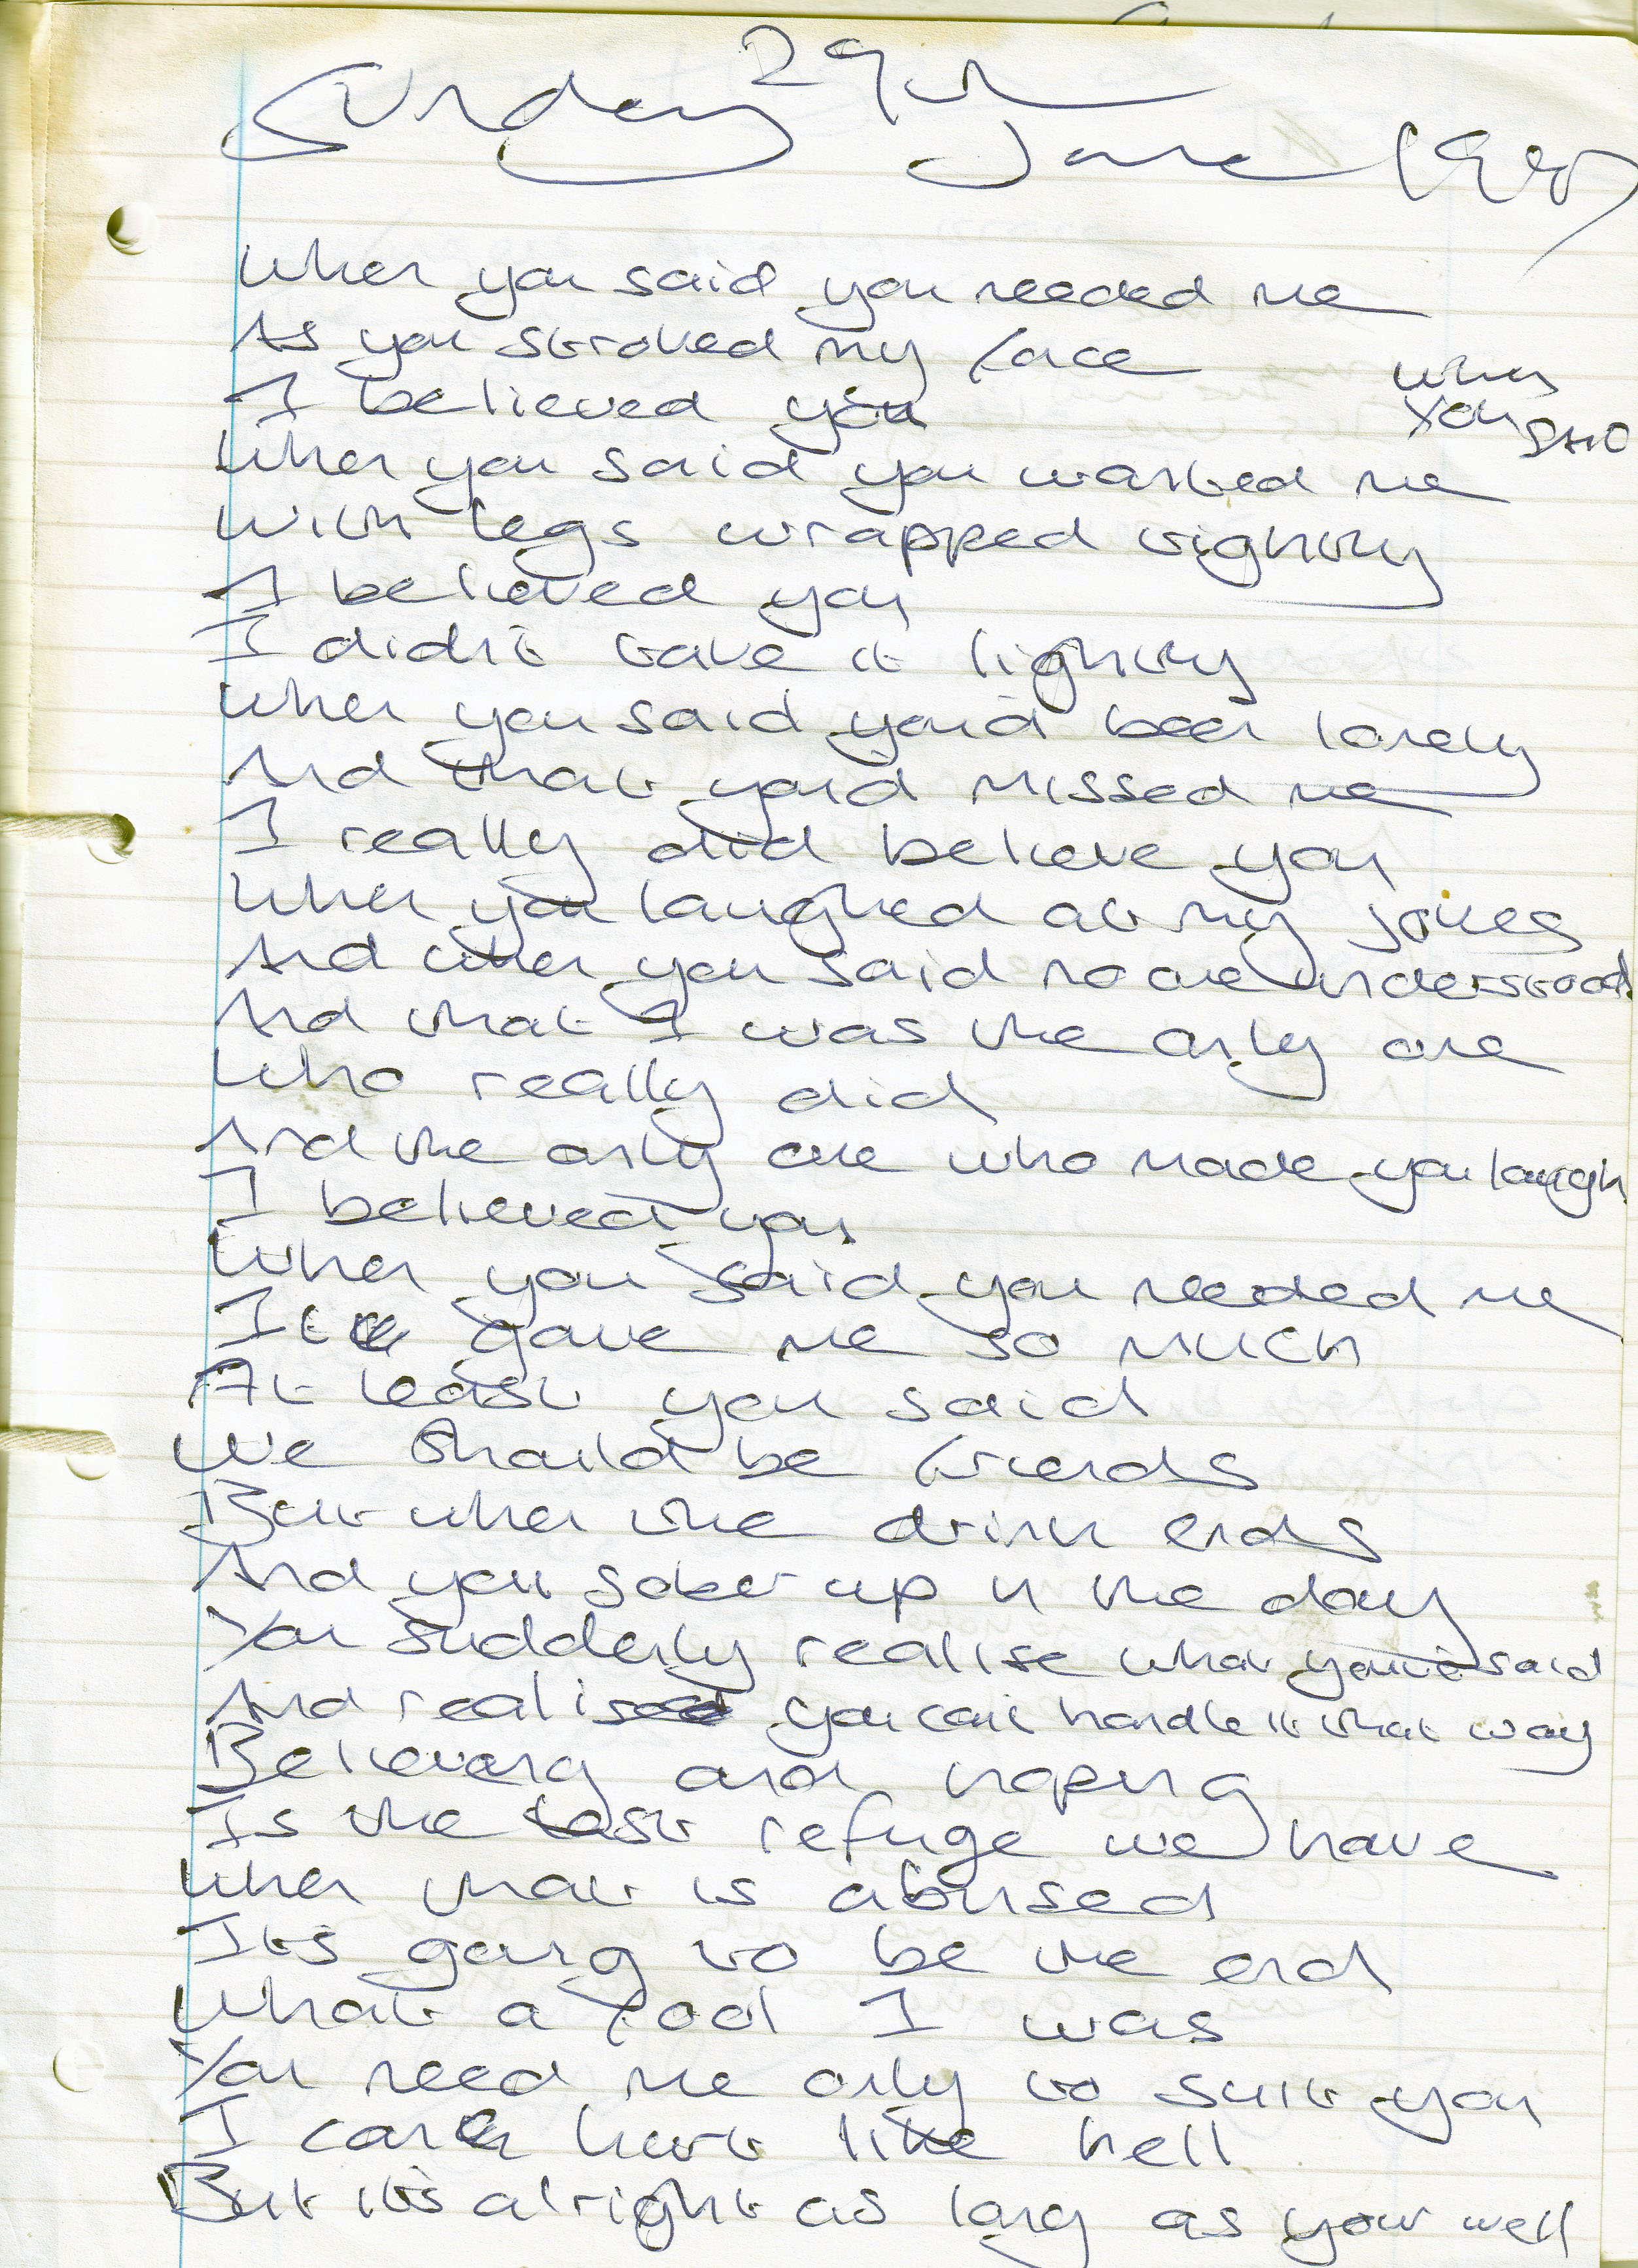 Sunday 29th June 1980
When you said you needed me
As you stroked my face
When
You
SAID
I believed you
When you said you wanted me
With legs wrapped tightly
I believed you
I didnt take it lightly
When you said you'd been lonely
And that you'd missed me
I really did believe you
When you laughed at my jokes
And when you said no one understood
And that I was the only one
Who really did
And the only one who made you laugh
I believed you
When you said you needed me
It gave me so much
At least you said
We should be friends
But when the drink ends
And you sober up n the day
You suddenly realise what you've said
And realise you cant handle it that way
Believing and hoping
Is the last refuge we have
When that is abused
Its going to be the end
What a fool I was
You need me only to suit you
I can hurt like hell
But it's alright as long as your well